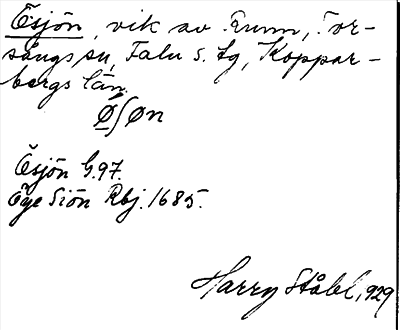 Ēsjön, vik av Runn, Tor-
sångs sn, Falu s. lg, Koppar-
bergs län.
Ø̱ʃøn
Ēsjön G.97.
Ēge Siön Rbj. 1685.
Harry Ståhl, 929